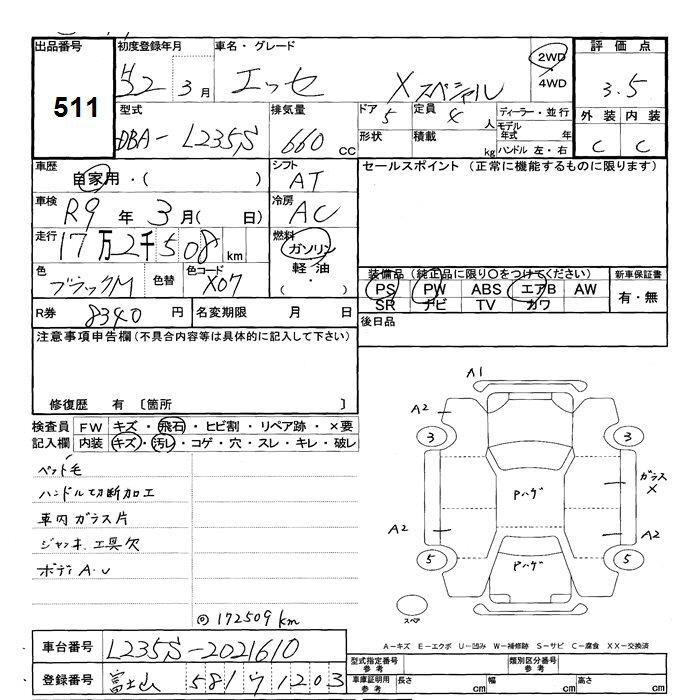 出品番号 初度登録年月 車名・グレード 評価点
511
H22 3月 エッセ Xスペシャル 2WD・4WD 3.5
型式 排気量 ドア 5 定員 4人 ディーラー・並行 外装 内装
DBA-L235S 660cc 形状 積載 kg モデル年式 年 C C
ハンドル 左・右
車歴 自家用・( ) シフト AT セールスポイント (正常に機能するものに限ります)
車検 R9年 3月( 日) 冷房 AC
走行 17万2千508km 燃料 ガソリン
軽油
( ・ )
色 ブラックM 色替 色コード X07
装備品 (純正品に限り○をつけてください) 新車保証書
PS PW ABS エアB AW 有・無
SR ナビ TV カワ
R券 8340円 名変期限 月 日 後日品
注意事項申告欄(不具合内容等は具体的に記入して下さい)
修復歴 有 〔箇所 〕
検査員 FW キズ・飛石・ヒビ割・リペア跡・×要
記入欄 内装 キズ・汚レ・コゲ・穴・スレ・キレ・破レ
ペット毛
ハンドル切断加工
車内ガラス片
ジャッキ、工具欠
ボディA.U
◎172509km
A1
A2
3 3
Pハゲ
ガラス
X
A2 A2
5 5
Pハゲ
スペア
A-キズ E-エクボ U-凹み W-補修跡 S-サビ C-腐食 XX-交換済
車台番号 L235S-2021610
型式指定番号 参考 類別区分番号 参考
登録番号 富士山 581 1203
車庫証明用 参考 長さ cm 幅 cm 高さ cm